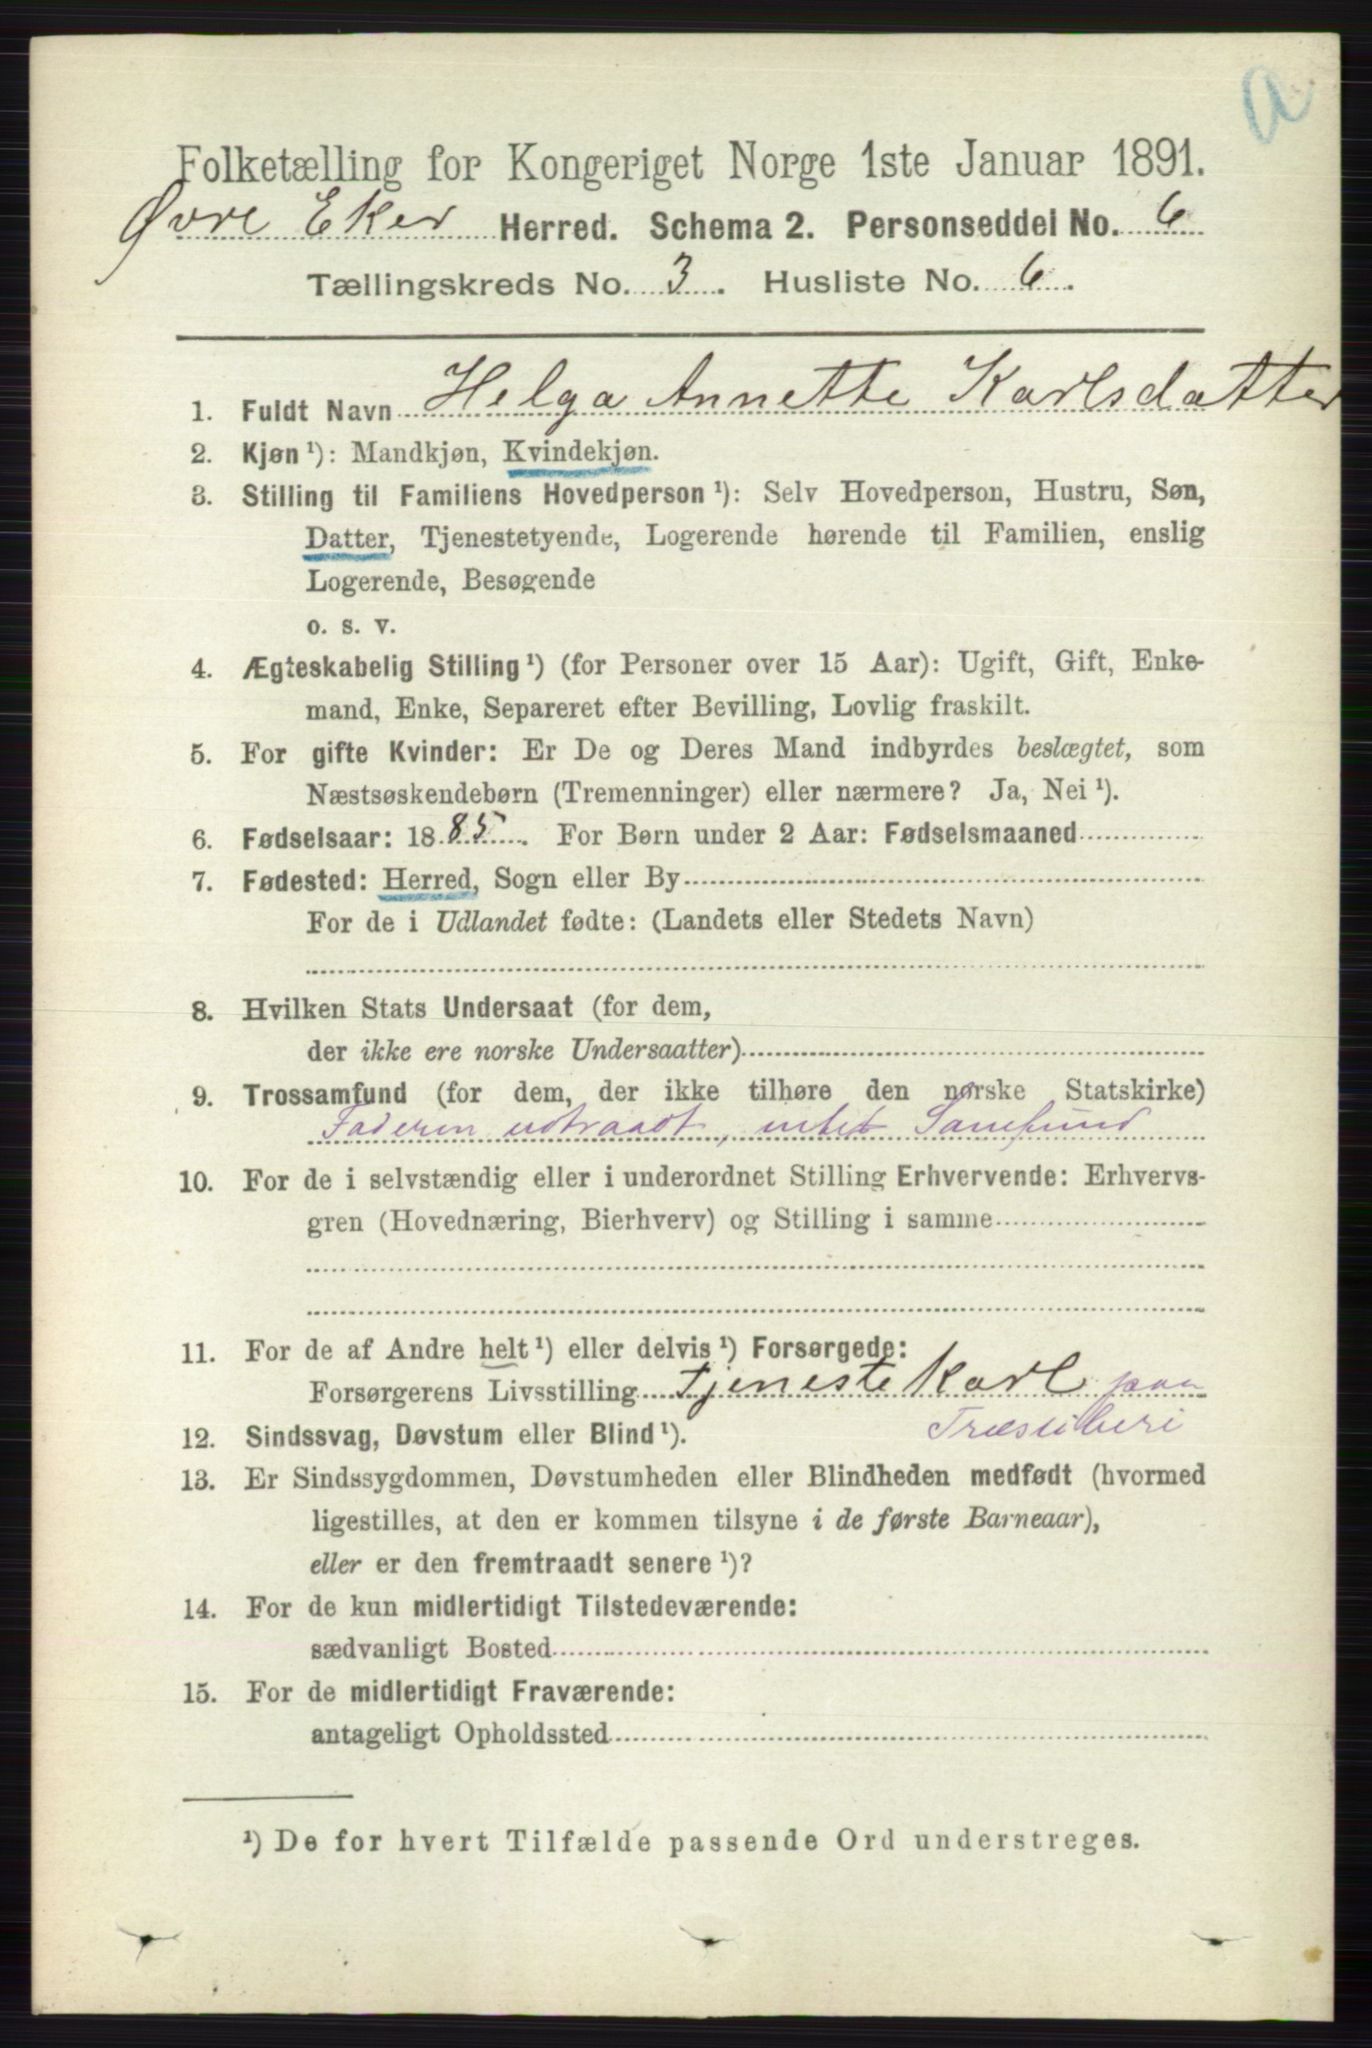 a
Folketælling for Kongeriget Norge 1ste Januar 1891.
Øvre Eker Herred. Schema 2. Personseddel No. 6
Tællingskreds No. 3. Husliste No. 6.
1. Fuldt Navn Helga Annette Karlsdatter
2. Kjøn ¹): Mandkjøn, Kvindekjøn.
3. Stilling til Familiens Hovedperson ¹): Selv Hovedperson, Hustru, Søn,
Datter, Tjenestetyende, Logerende hørende til Familien, enslig
Logerende, Besøgende
o. s. v.
4. Ægteskabelig Stilling ¹) (for Personer over 15 Aar): Ugift, Gift, Enke-
mand, Enke, Separeret efter Bevilling, Lovlig fraskilt.
5. For gifte Kvinder: Er De og Deres Mand indbyrdes beslægtet, som
Næstsøskendebørn (Tremenninger) eller nærmere? Ja, Nei ¹).
6. Fødselsaar: 1885. For Børn under 2 Aar: Fødselsmaaned
7. Fødested: Herred, Sogn eller By
For de i Udlandet fødte: (Landets eller Stedets Navn)
8. Hvilken Stats Undersaat (for dem,
der ikke ere norske Undersaatter)
9. Trossamfund (for dem, der ikke tilhøre den norske Statskirke)
Faderen udtraadt, intet Samfund
10. For de i selvstændig eller i underordnet Stilling Erhvervende: Erhvervs-
gren (Hovednæring, Bierhverv) og Stilling i samme
11. For de af Andre helt ¹) eller delvis ¹) Forsørgede:
Forsørgerens Livsstilling Tjenestekarl paa
Træsliberi
12. Sindssvag, Døvstum eller Blind ¹).
13. Er Sindssygdommen, Døvstumheden eller Blindheden medfødt (hvormed
ligestilles, at den er kommen tilsyne i de første Barneaar),
eller er den fremtraadt senere ¹)?
14. For de kun midlertidigt Tilstedeværende:
sædvanligt Bosted
15. For de midlertidigt Fraværende:
antageligt Opholdssted
¹) De for hvert Tilfælde passende Ord understreges.